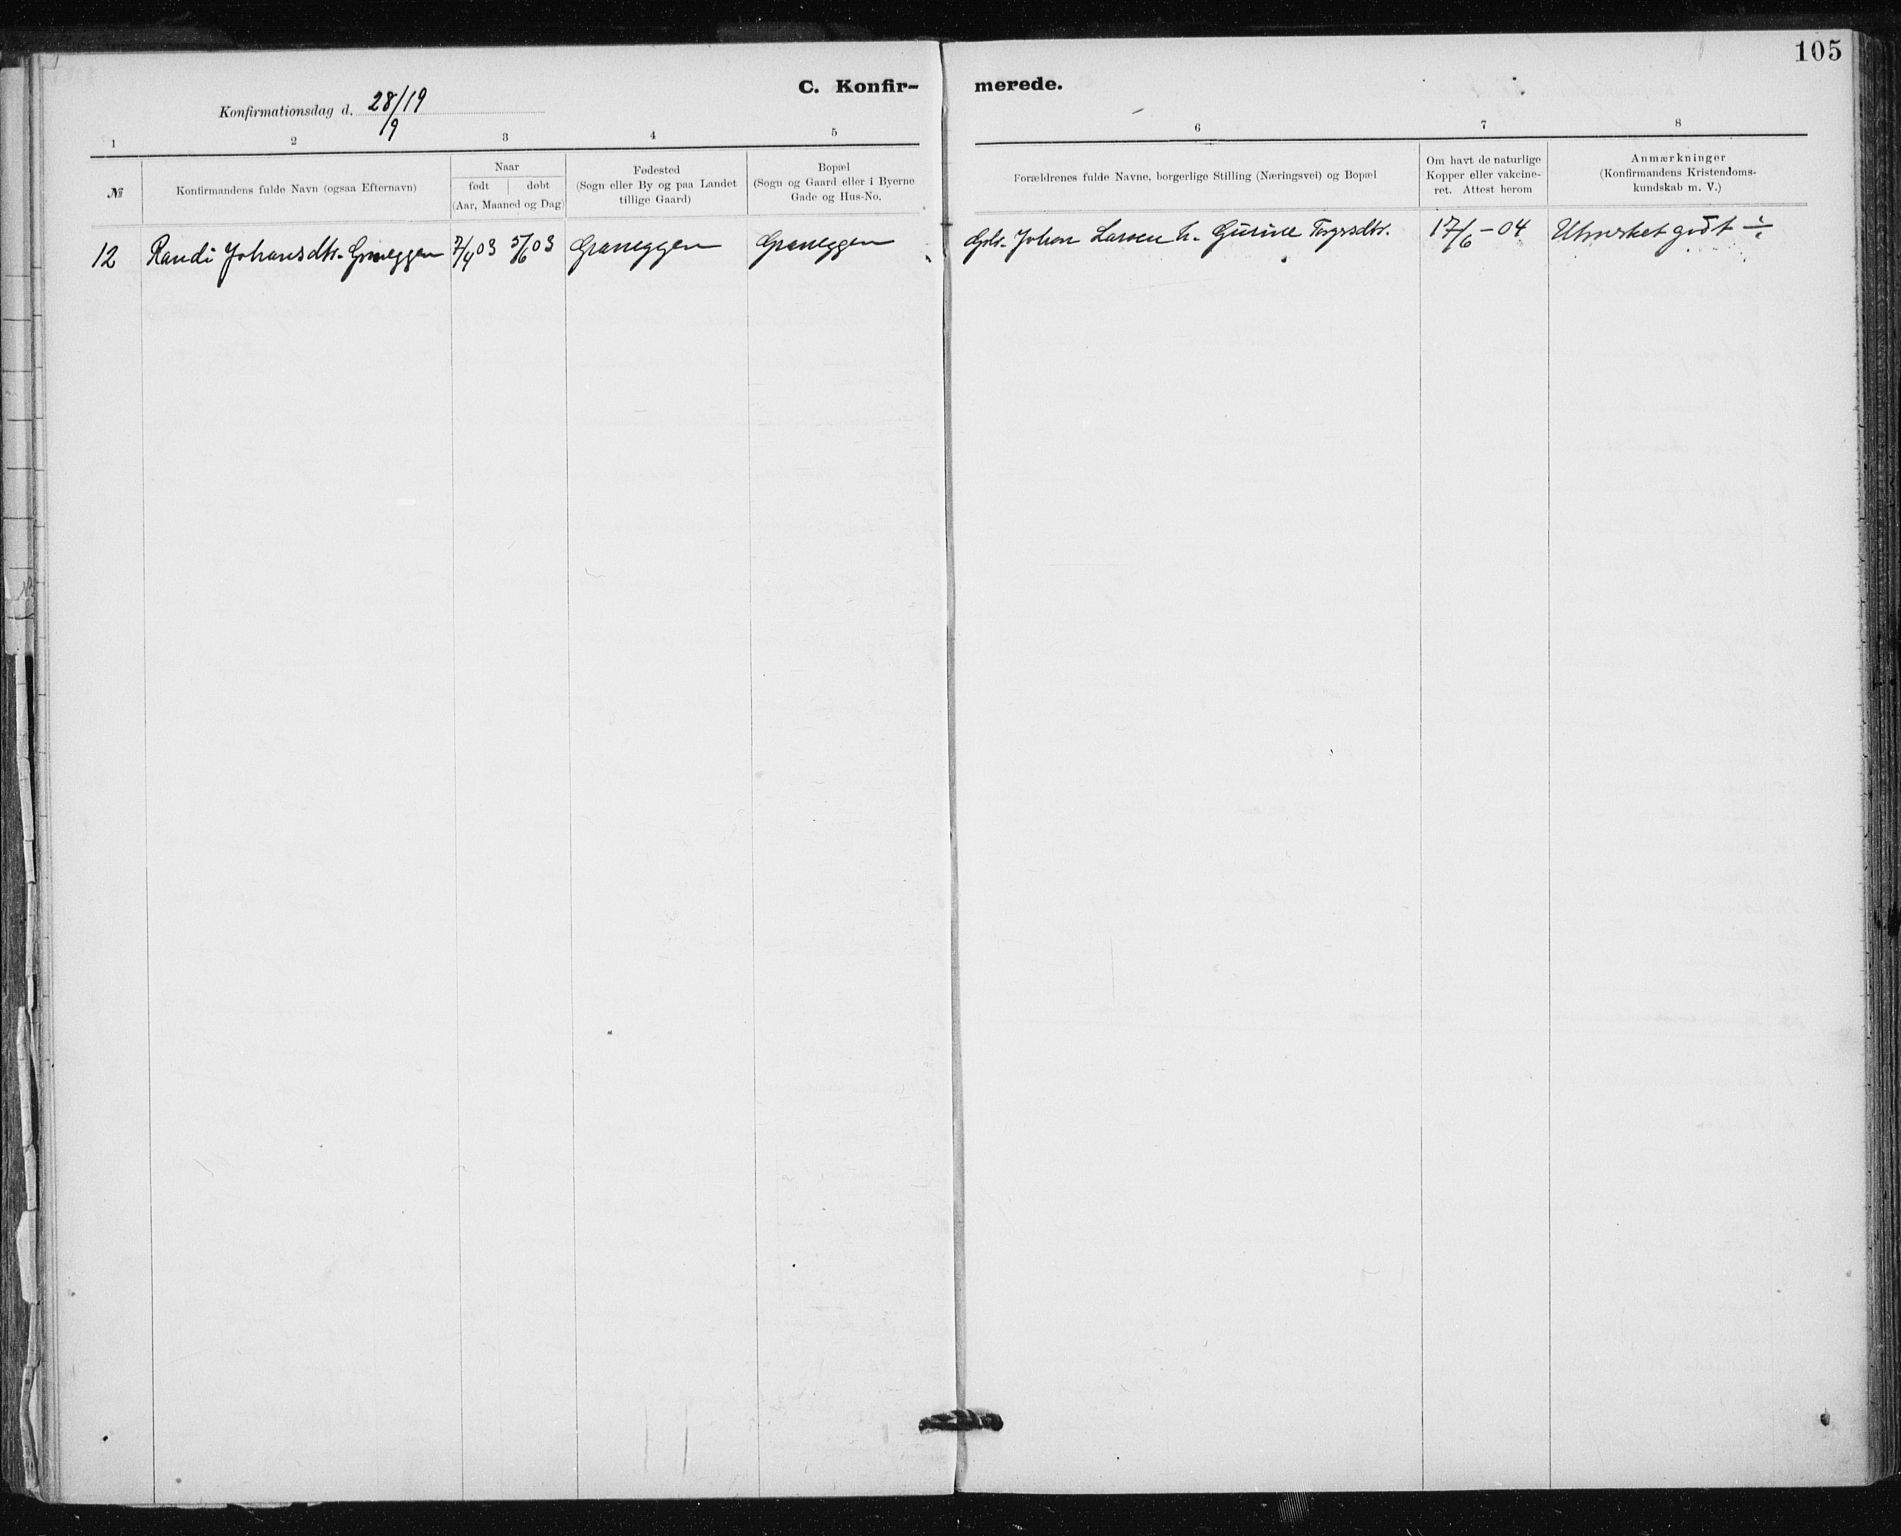 105
C. Konfir- merede.
Konfirmationsdag d. 28/9 19
1 2 3 4 5 6 7 8
№
Konfirmandens fulde Navn (ogsaa Efternavn)
Naar
født | døbt
(Aar, Maaned og Dag)
Fødested
(Sogn eller By og paa Landet
tillige Gaard)
Bopæl
(Sogn og Gaard eller i Byerne
Gade og Hus-No.
Forældrenes fulde Navne, borgerlige Stilling (Næringsvei) og Bopæl
Om havt de naturlige
Kopper eller vakcine-
ret. Attest herom
Anmærkninger
(Konfirmandens Kristendoms-
kundskab m. V.)
12 Randi Johansdtr. Graneggen 7/4 03 5/6 03 Graneggen Graneggen Johan Larsen h. Gurine 17/6-04 Utmerket godt ÷